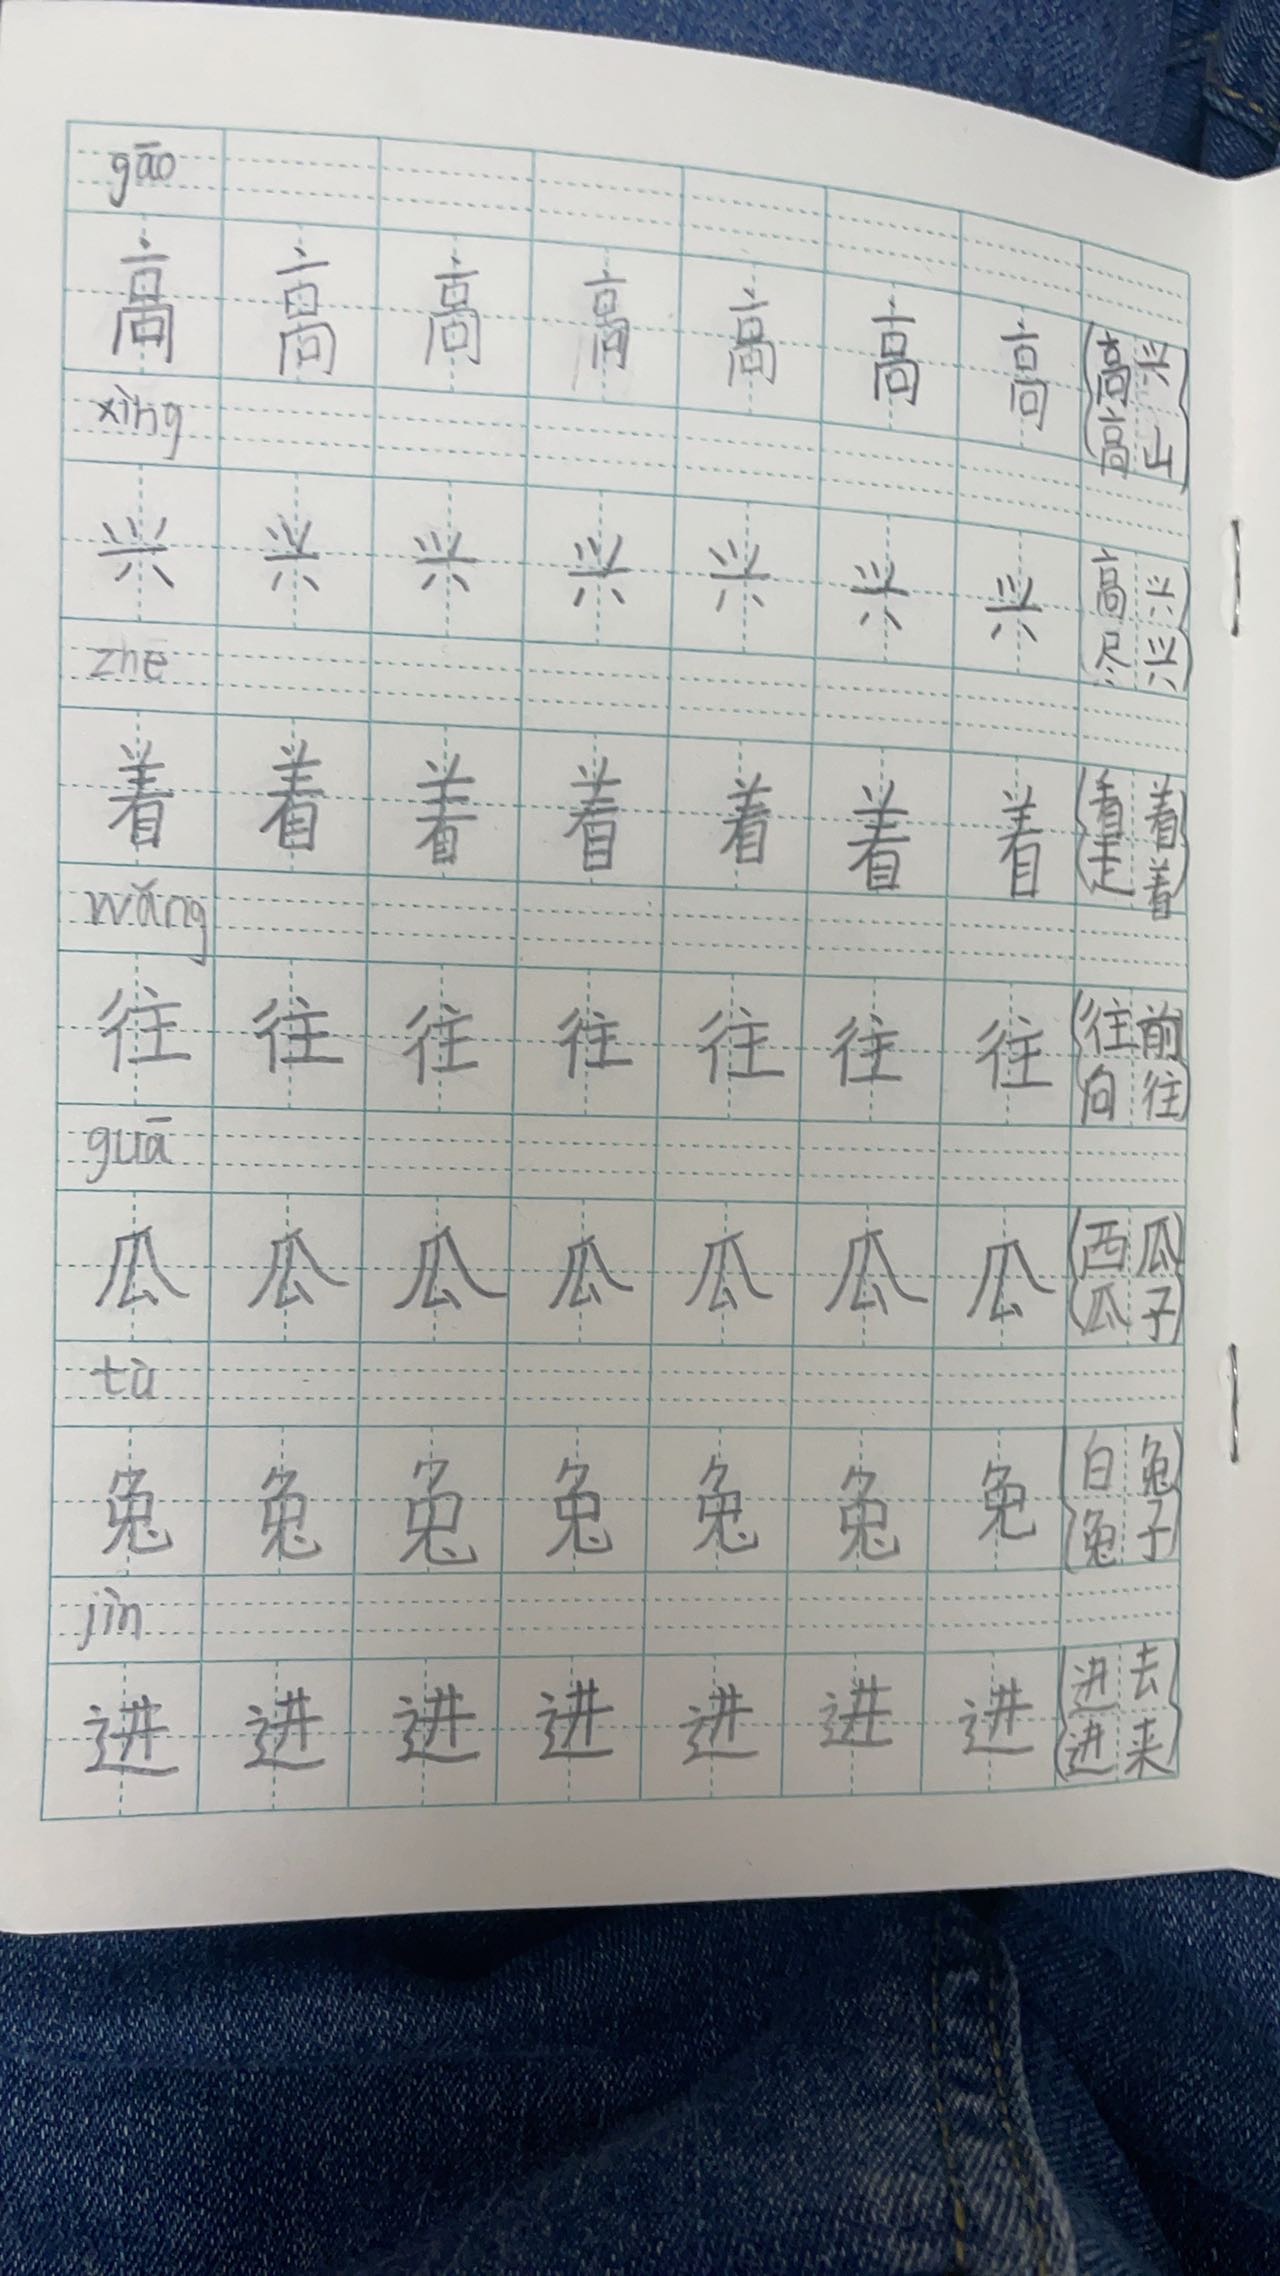 gāo
高 高 高 高 高 高 高 (高兴
高山)
xìng
兴 兴 兴 兴 兴 兴 兴 (高兴
尽兴)
zhe
着 着 着 着 着 着 着 (看着
走着)
wǎng
往 往 往 往 往 往 往 (往前
向往)
guā
瓜 瓜 瓜 瓜 瓜 瓜 瓜 (西瓜
瓜子)
tù
兔 兔 兔 兔 兔 兔 免 (白兔
兔子)
jìn
进 进 进 进 进 进 进 (进去
进来)